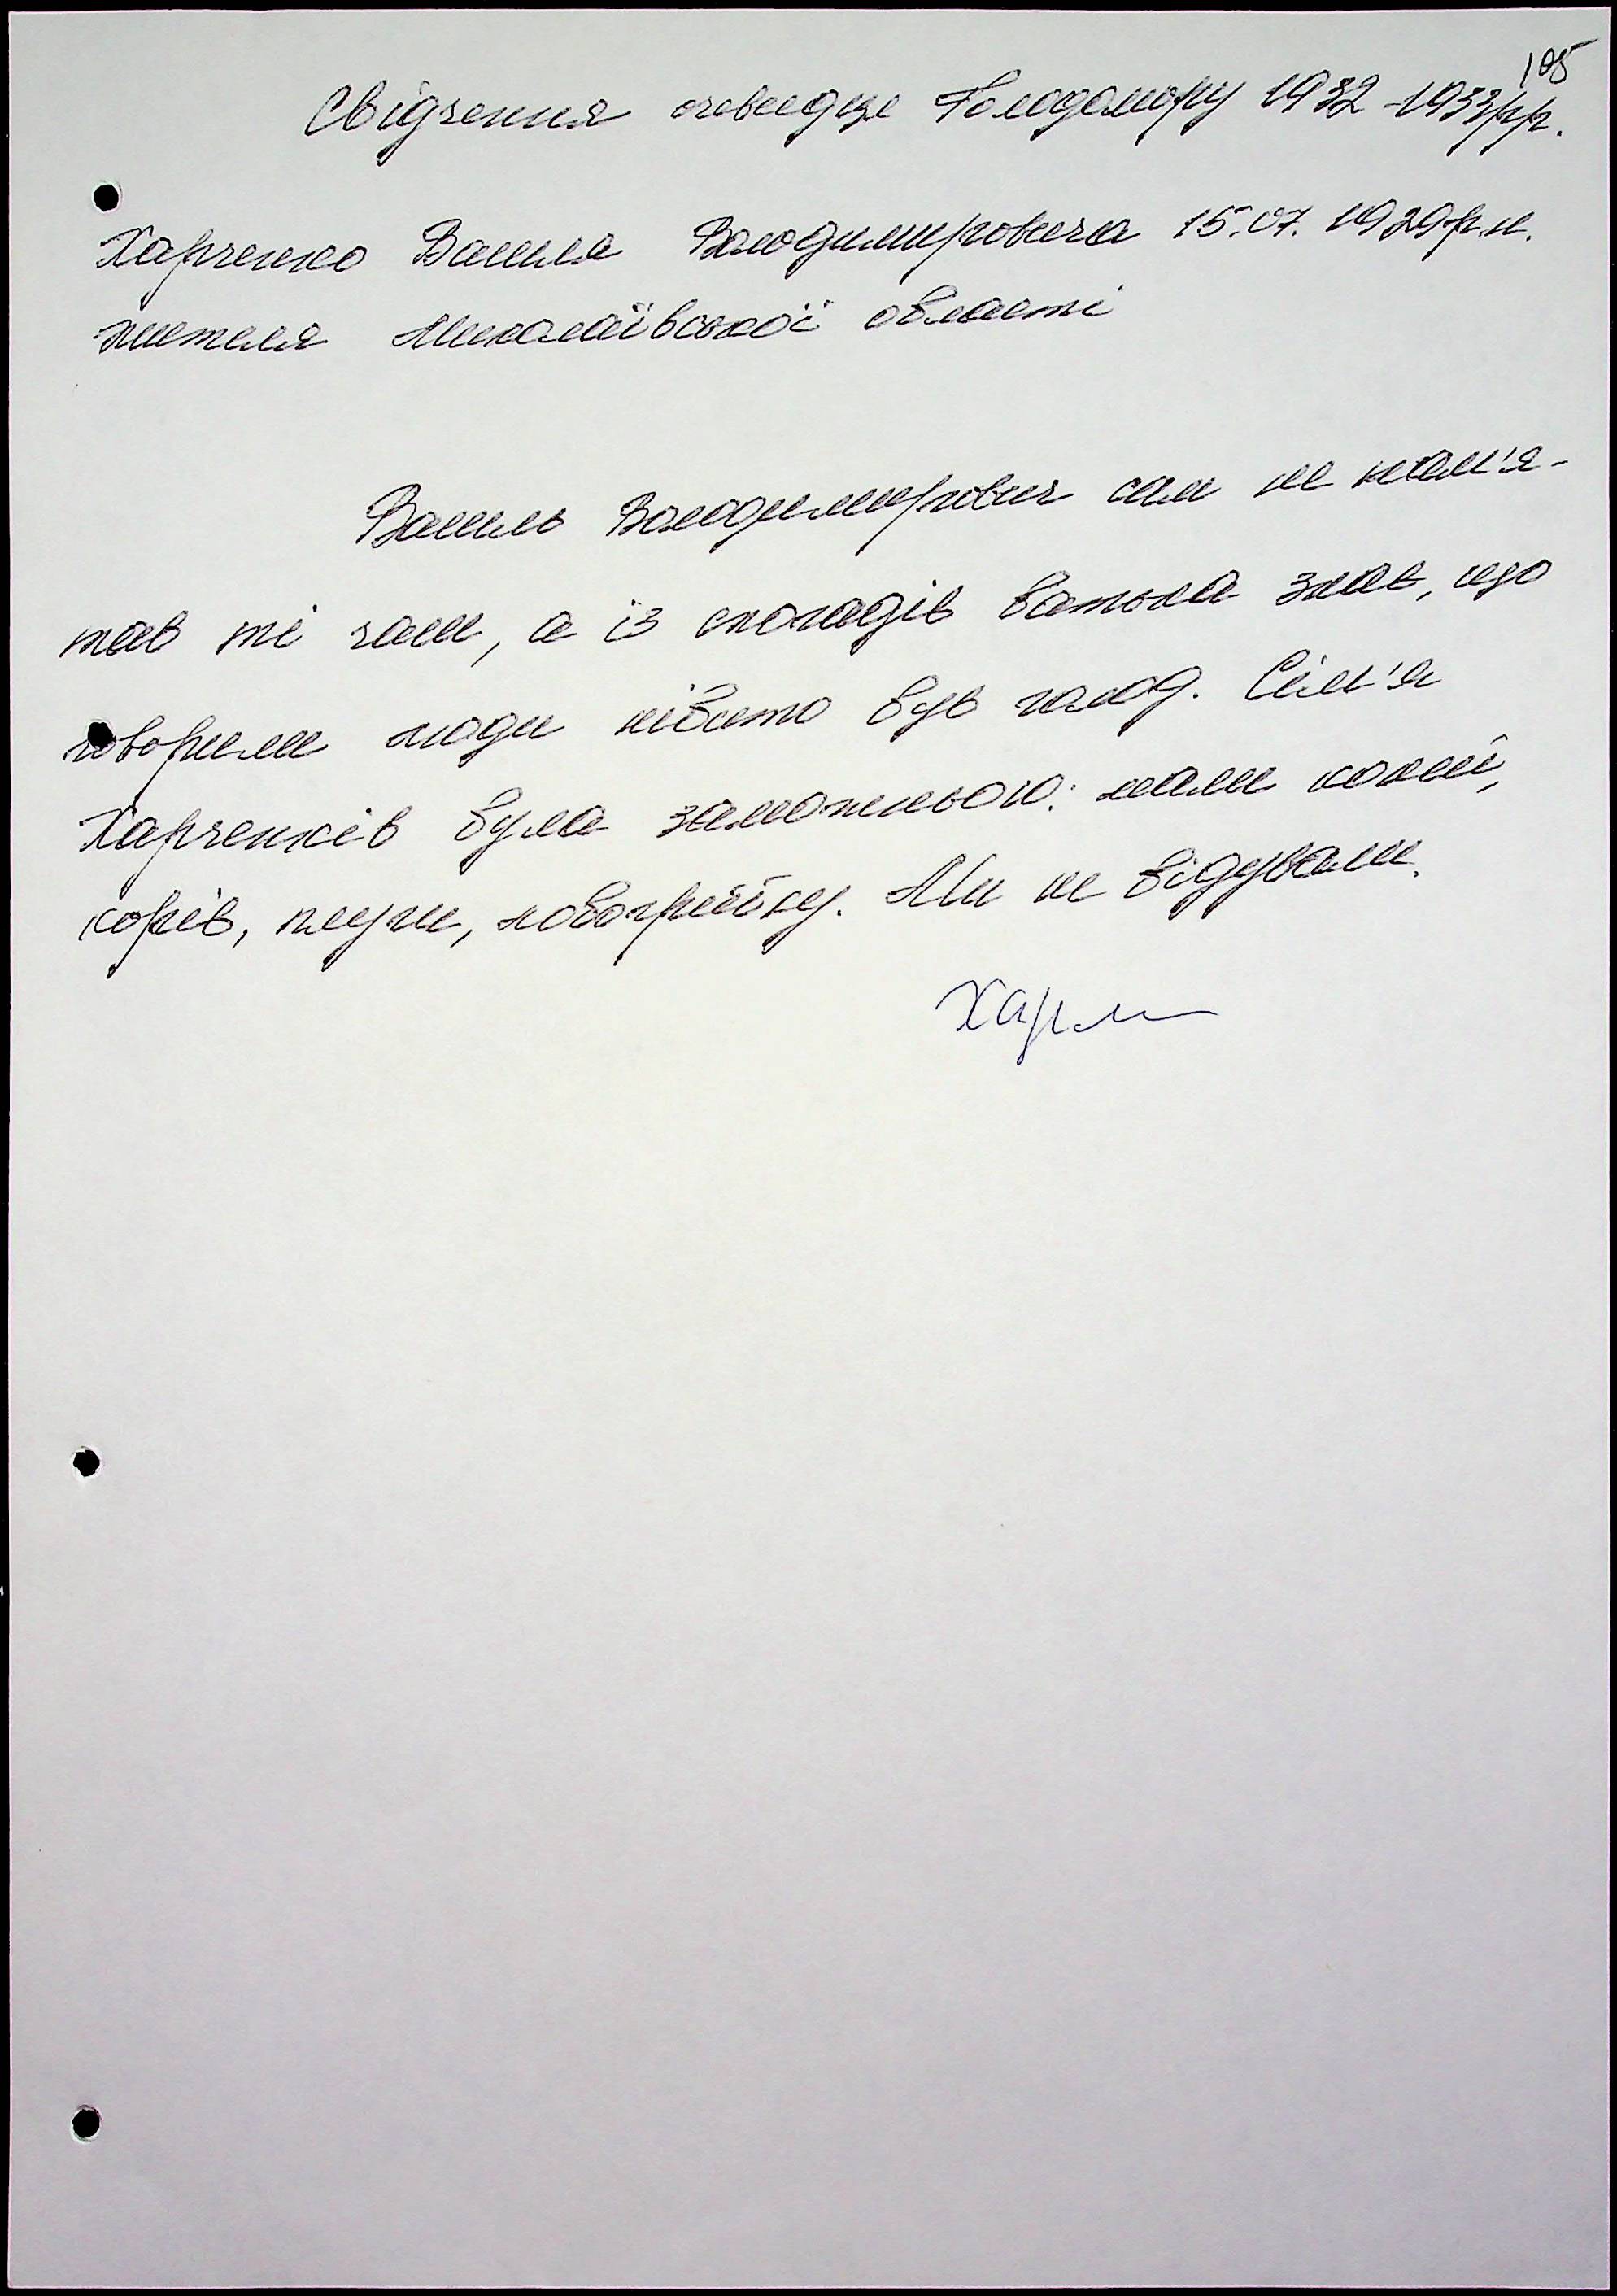 105
Свідчення очевидце Голодомору 1932-1933рр.
Харченко Василя Володимировича 15.07.1929р.н.
жителя Миколаївської області
Василь Володимирович сам не пам'я-
тав ті часи, а із спогадів батька знав, що
говорили люди нібито був голод. Сім'я
Харченків була заможньою: мали коней,
корів, плуги, лобогрійку. Ми не бідували.